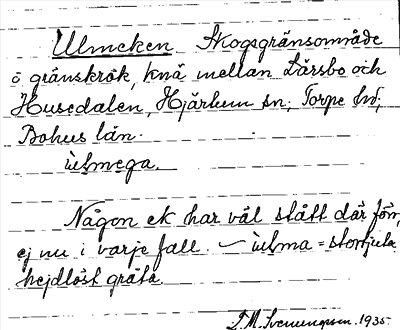 Ulmeken Skogsgränsområde
o gränskrök, knä mellan Lärsbo och
Husedalen, Hjärtum sn; Torpe hd,
Bohus län.
ùlmega.
Någon ek har väl stått där förr,
ej nu i varje fall. – ùlma = stortjuta
hejdlöst gråta.
1935.